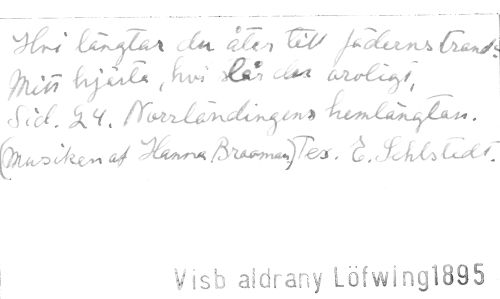 Hvi längtar du åter till fäderns strand.
Mitt hjärta, hvi slår du oroligt,
Sid. 24. Norrländingens hemlängtan.
(Musiken af Hanna Brooman) Tex. E. Sehlstedt.
Visb aldrany Löfwing1895